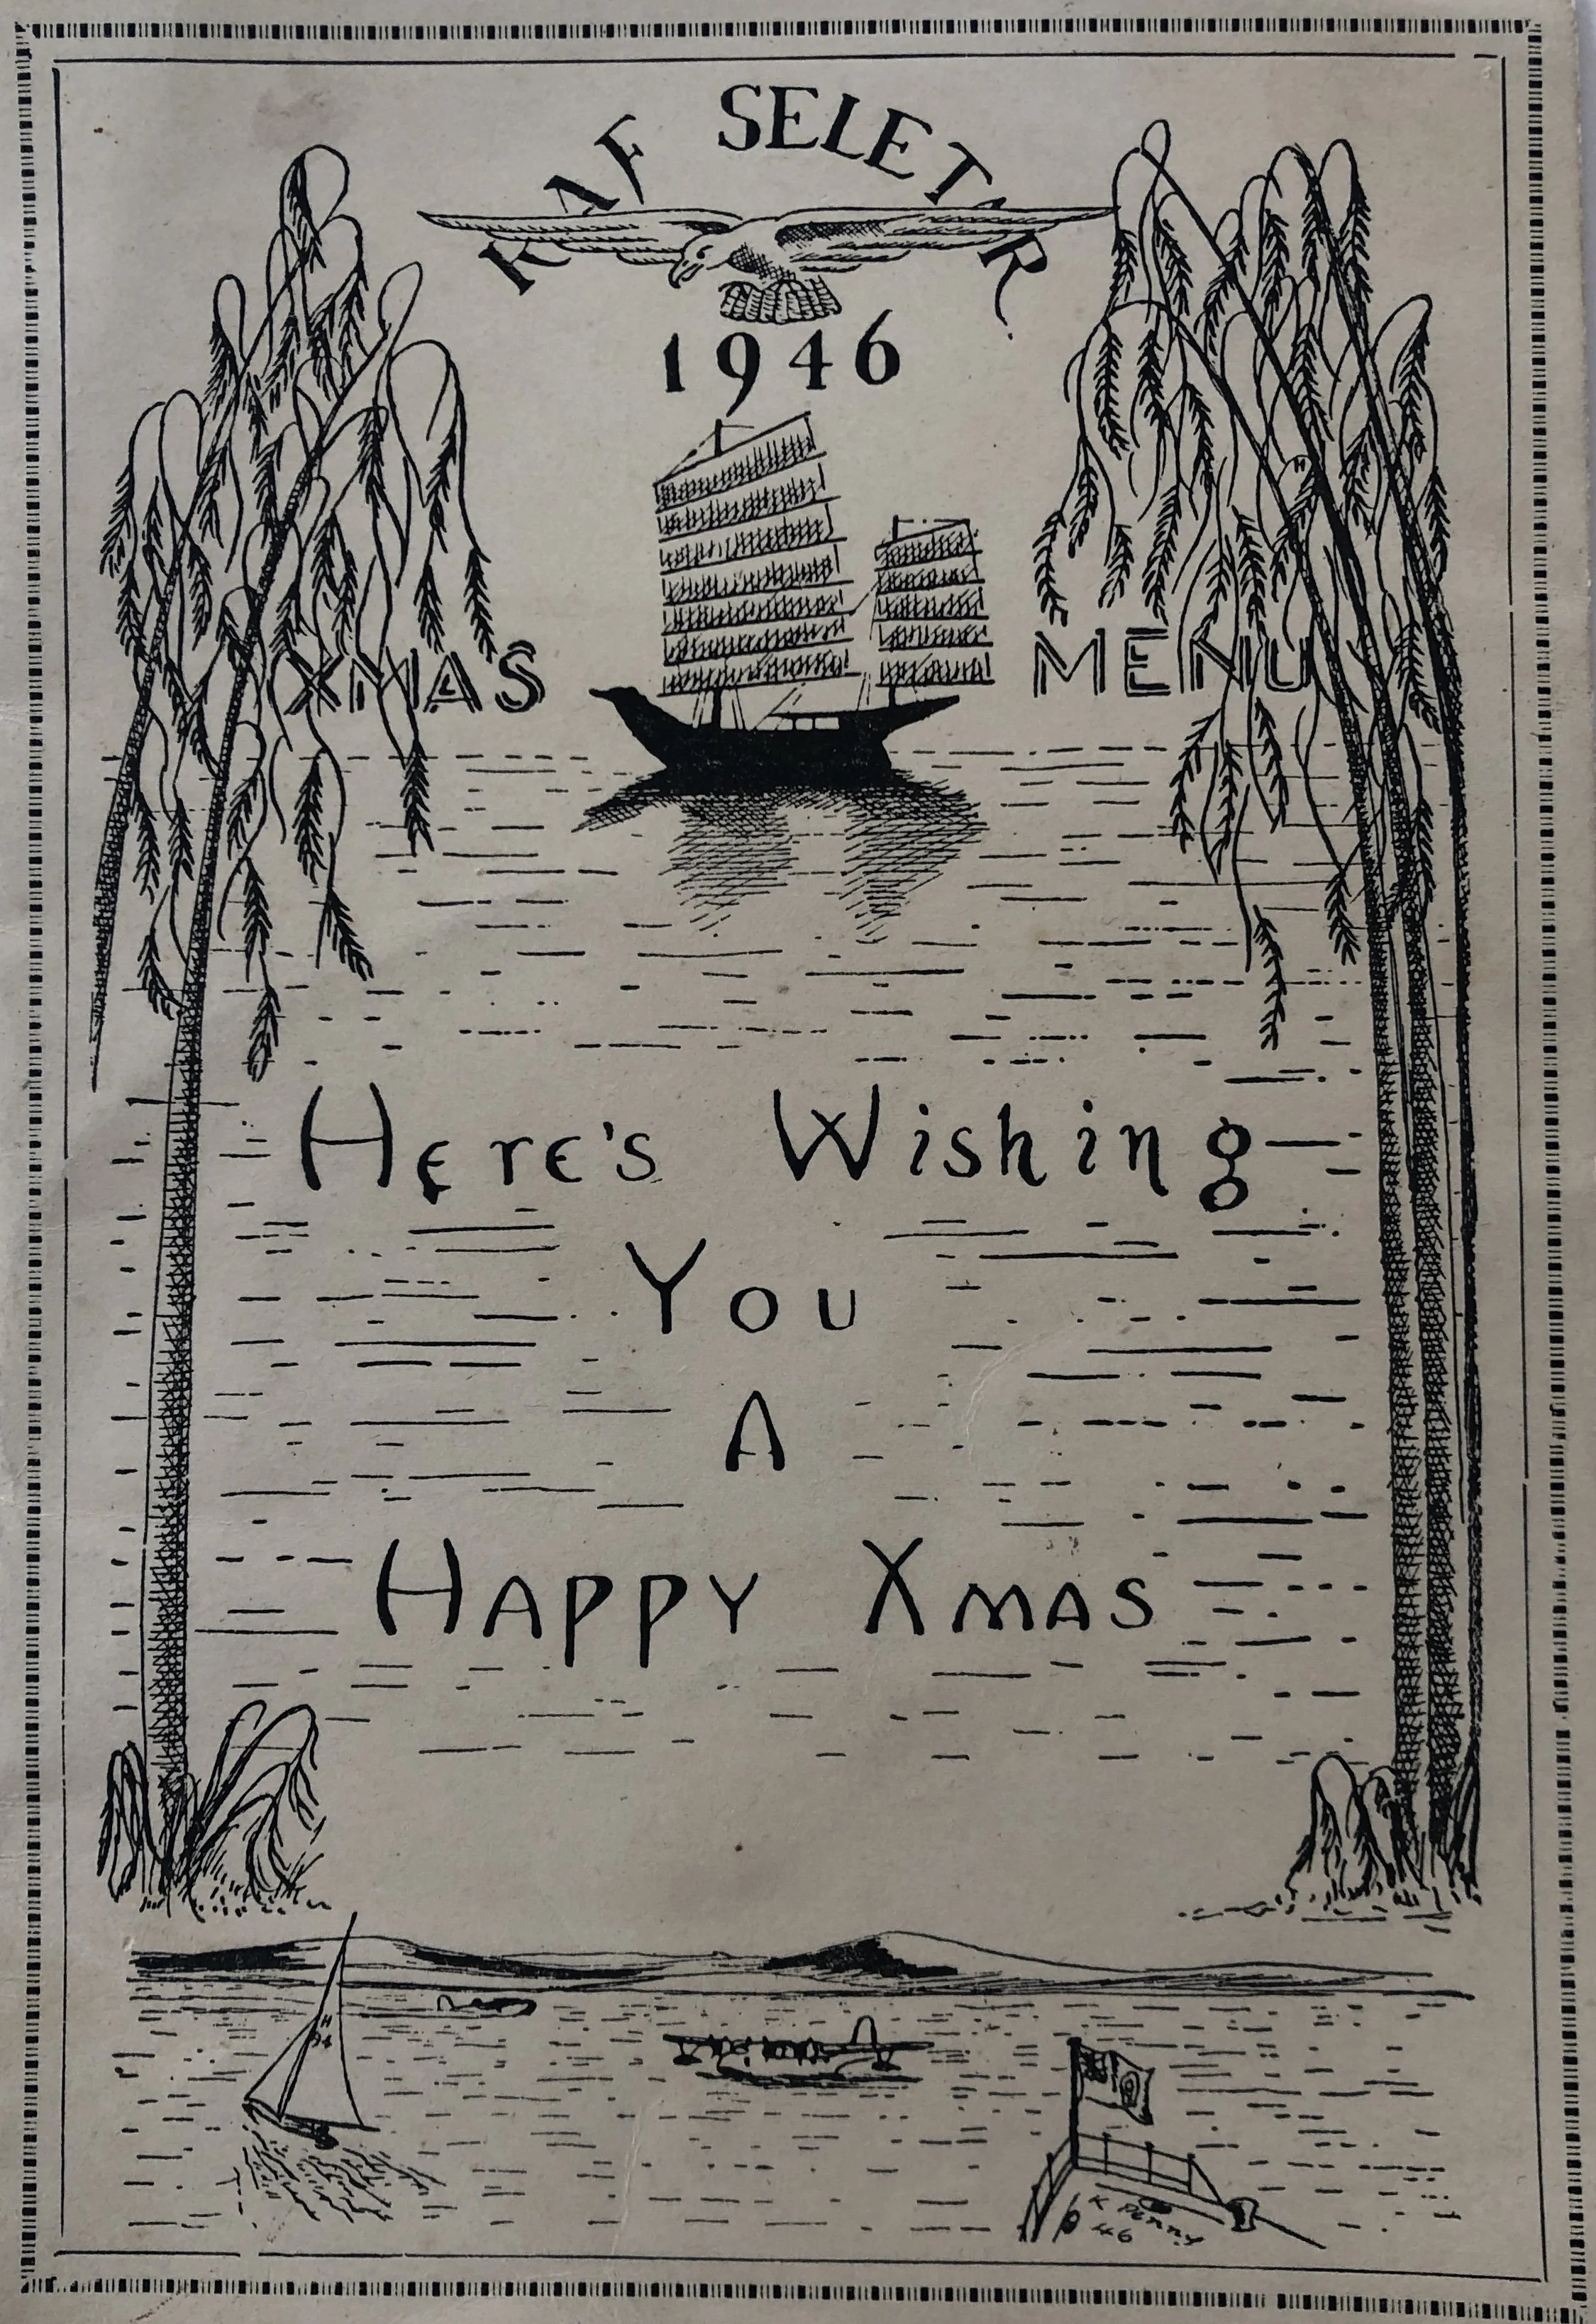 RAF SELETAR
1946
XMAS MENU
Here's Wishing
You
A
Happy Xmas
H
94
K PENNY
46